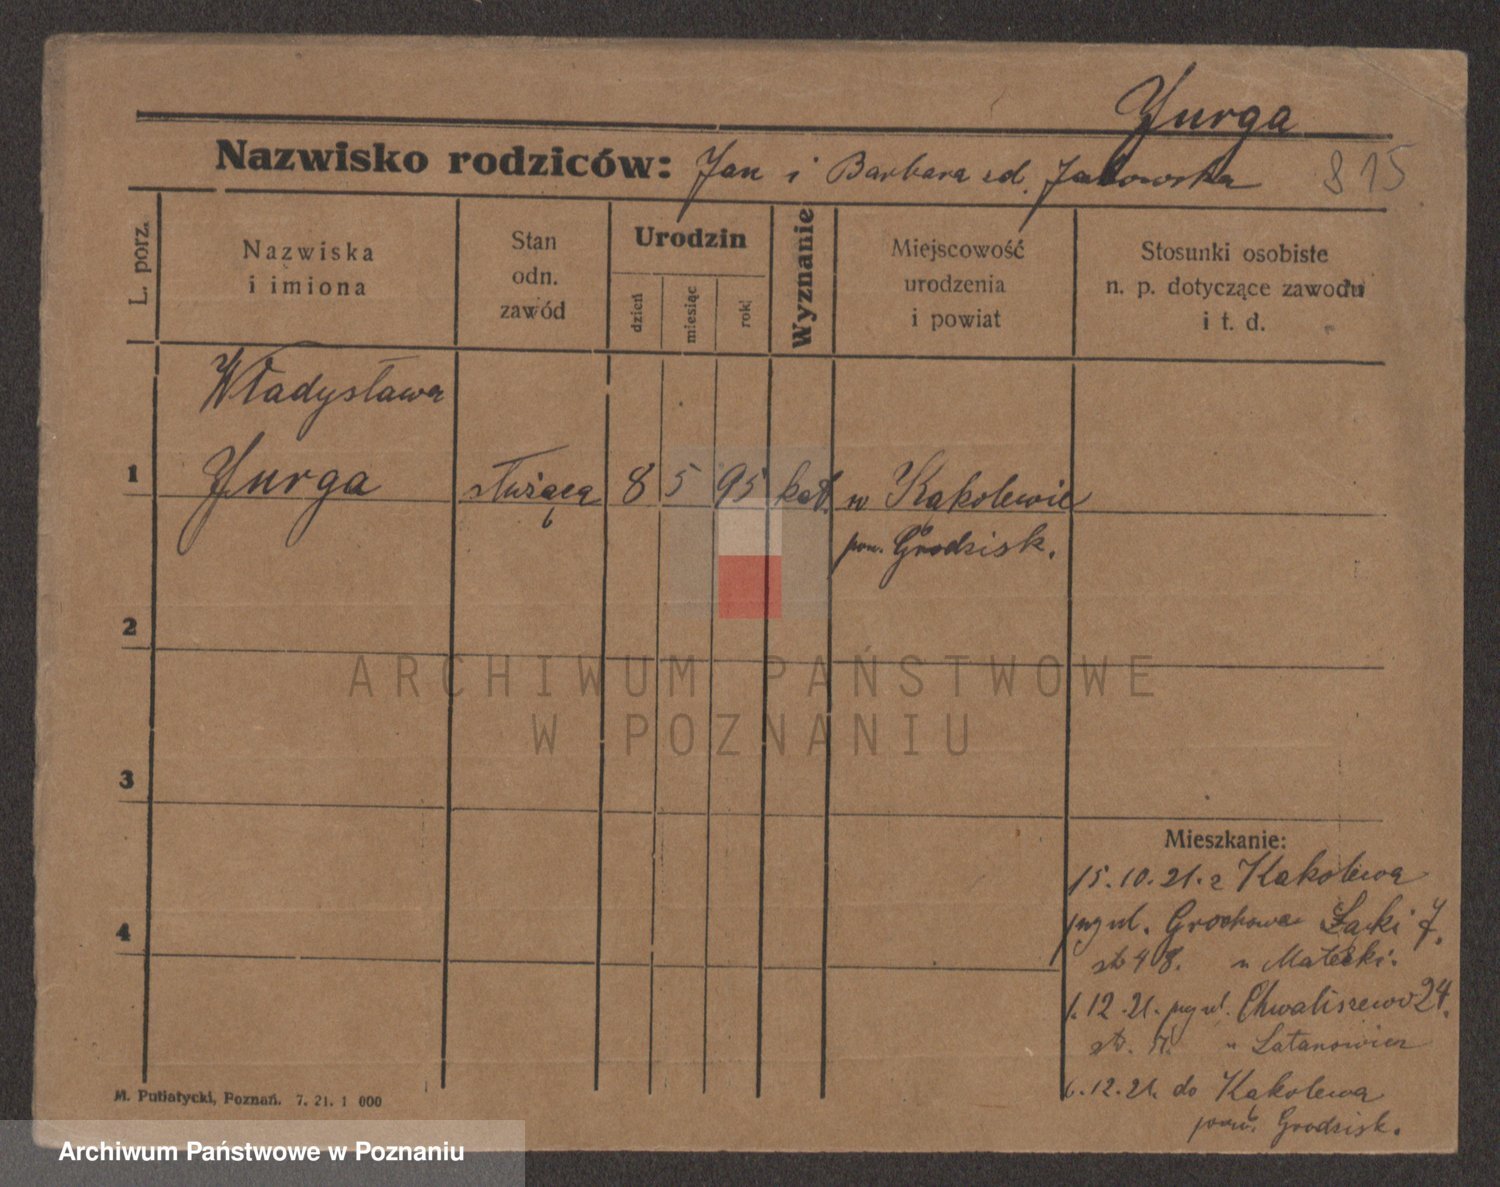 Yurga
Nazwisko rodziców: Jan i Barbara zd. Jakowska
815
L. porz.
Nazwiska
i imiona
Stan
odn.
zawód
Urodzin
dzień
miesiąc
rok
Wyznanie
Miejscowość
urodzenia
i powiat
Stosunki osobiste
n. p. dotyczące zawodu
i t. d.
Władysława
1 Yurga służąca 8 5 95 kat. w Kąkolewie
pow. Grodzisk.
2
3
4
Mieszkanie:
15.10.21. z Kąkolewa
ul. Grochowe Łąki 7.
u Matecki.
1.12.21. ul. Chwaliszewo 24.
u Latanowicz
6.12.21. do Kąkolewa
pow. Grodzisk.
M. Putiatycki, Poznań. 7. 21. 1 000
ARCHIWUM PAŃSTWOWE
W POZNANIU
Archiwum Państwowe w Poznaniu